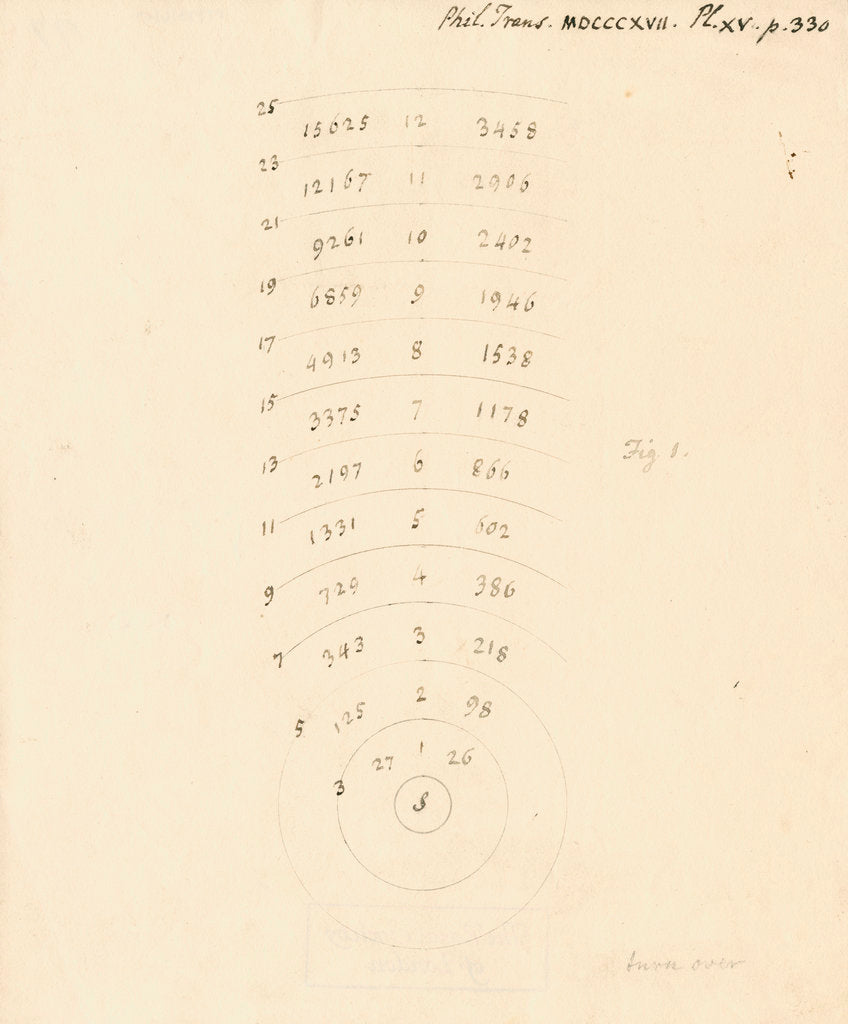 Phil. Trans. MDCCCXVII. Pl. XV. p. 330
25
15625 12 3458
23
12167 11 2906
21
9261 10 2402
19
6859 9 1946
17
4913 8 1538
15
3375 7 1178
13
2197 6 866
Fig 1.
11
1331 5 602
9
729 4 386
7
343 3 218
5
125 2 98
3
27 1 26
S
turn over